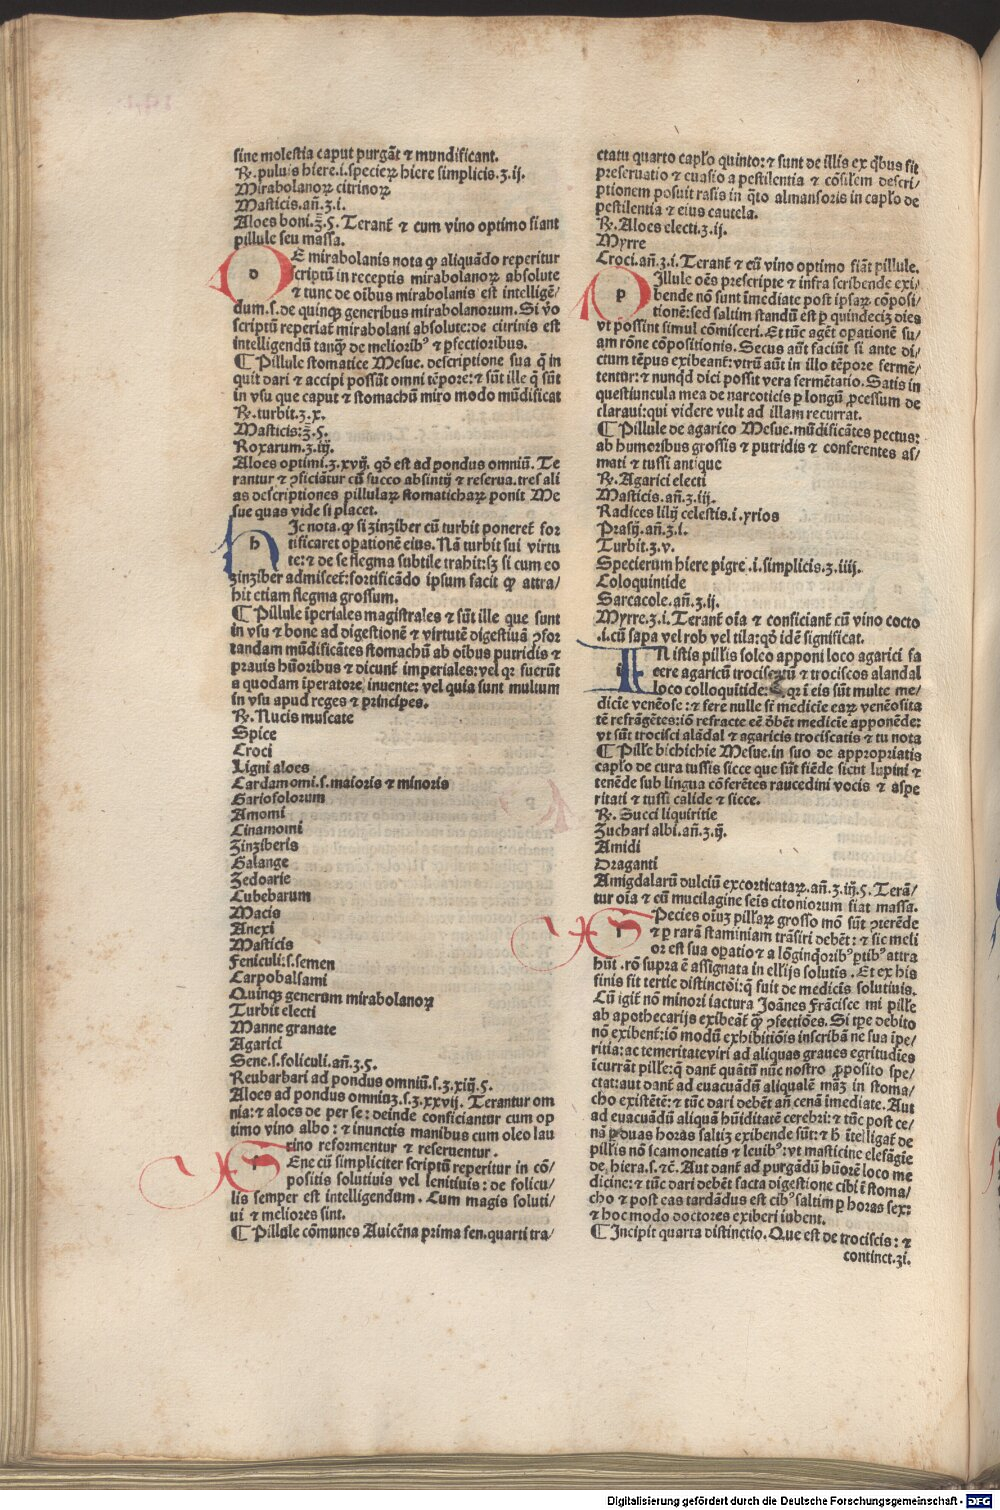 sine molestia caput purgāt ⁊ mundificant.
℞. puluis hiere .i. specierꝝ hiere simplicis .ʒ. ij.
Mirabolanoꝝ citrinoꝝ
Masticis. añ. ʒ. i.
Aloes boni. ʒ̄. ꝭ. Terant᷑ ⁊ cum vino optimo fiant
pillule seu massa.
d E mirabolanis nota ꝙ aliquādo reperitur
scriptū in receptis mirabolanoꝝ absolute
⁊ tunc de oībus mirabolanis est intelligē/
dum .s. de quinqꝫ generibus mirabolanorum. Si v̊o
scriptū reperiat᷑ mirabolani absolute: de citrinis est
intelligendū tanqꝫ de meliorib⁹ ⁊ ꝑfectioribus.
¶ Pillule stomatice Mesue. descriptione sua q̄ in
quit dari ⁊ accipi possūt omni tēpore: ⁊ sūt ille q̄ sūt
in vsu que caput ⁊ stomachū miro modo mūdificāt
℞. turbit. ʒ. x.
Masticis: ʒ̄. ꝭ.
Roxarum. ʒ. iij.
Aloes optimi. ʒ. xvij. qd̄ est ad pondus omniū. Te
rantur ⁊ ꝯficiātur cū succo absintij ⁊ reserua. tres ali
as descriptiones pillulaꝝ stomaticharꝝ ponit Me
sue quas vide si placet.
h Ic nota. ꝙ si zinziber cū turbit poneret᷑ for
tificaret oꝑationē eius. Nā turbit sui virtu
te: ⁊ de se flegma subtile trahit: sꝫ si cum eo
zinziber admiscet᷑: fortificādo ipsum facit ꝙ attra/
hit etiam flegma grossum.
¶ Pillule īperiales magistrales ⁊ sūt ille que sunt
in vsu ⁊ bone ad digestionē ⁊ virtutē digestiuā ꝯfor
tandam mūdificātes stomachū ab oībus putridis ⁊
prauis hūoribus ⁊ dicunt᷑ imperiales: vel qꝛ fuerūt
a quodam īperatore inuente: vel quia sunt multum
in vsu apud reges ⁊ principes.
℞. Nucis muscate
Spice
Croci
Ligni aloes
Cardamomi .s. maioris ⁊ minoris
Gariofolorum
Amomi
Cinamomi
Zinziberis
Galange
Zedoarie
Cubebarum
Macis
Anexi
Masticis
Feniculi .s. semen
Carpobalsami
Quinqꝫ generum mirabolanoꝝ
Turbit electi
Manne granate
Agarici
Sene .s. foliculi. añ. ʒ. ꝭ.
Reubarbari ad pondus omniū .s. ʒ. xiij. ꝭ.
Aloes ad pondus omniuꝫ .s. ʒ. xxvij. Terantur om
nia: ⁊ aloes de per se: deinde conficiantur cum op
timo vino albo: ⁊ inunctis manibus cum oleo lau
rino reformentur ⁊ reseruentur.
s Ene cū simpliciter scriptū reperitur in cō/
positis solutiuis vel lenitiuis: de folicu/
lis semper est intelligendum. Cum magis soluti/
ui ⁊ meliores sint.
¶ Pillule cōmunes Auicēna prima fen. quarti tra/
ctatu quarto capl̓o quinto: ⁊ sunt de illis ex qͥbus fit
preseruatio ⁊ euasio a pestilentia ⁊ cōsilem descri/
ptionem posuit rasis in qͥto almansoris in capl̓o de
pestilentia ⁊ eius cautela.
℞. Aloes electi. ʒ. ij.
Myrre
Croci. añ. ʒ. i. Terant᷑ ⁊ cū vino optimo fiāt pillule.
p Illule oēs prescripte ⁊ infra scribende exi/
bende nō sunt īmediate post ipsaꝝ cōposi/
tionē: sed saltim standū est ꝑ quindeciꝫ dies
vt possint simul cōmisceri. Et tūc agēt oꝑationē su/
am rōne cōpositionis. Secus aūt faciūt si ante di/
ctum tēpus exibeant᷑: vtrū aūt in illo tēpore fermē/
tentur: ⁊ nunqd̓ dici possit vera fermētatio. Satis in
questiuncula mea de narcoticis ꝑ longū ꝓcessum de
claraui: qui videre vult ad illam recurrat.
¶ Pillule de agarico Mesue. mūdificātes pectus:
ab humoribus grossis ⁊ putridis ⁊ conferentes as/
mati ⁊ tussi antique
℞. Agarici electi
Masticis. añ. ʒ. iij.
Radices lilij celestis .i. yrios
Prasij. añ. ʒ. i.
Turbit. ʒ. v.
Specierum hiere pigre .i. simplicis. ʒ. iiij.
Coloquintide
Sarcacole. añ. ʒ. ij.
Myrre. ʒ. i. Terant᷑ oīa ⁊ conficiant᷑ cū vino cocto
.i. cū sapa vel rob vel tila: qd̄ idē significat.
i N istis pill̓is soleo apponi loco agarici fa
cere agaricū trociscatū ⁊ trociscos alandal
loco colloquītide: qꝛ ī eis sūt multe me/
dicīe venēose: ⁊ fere nulle st̄ medicīe eaꝝ venēosita
tē refrāgētes: iō refracte eē ōbēt medicīe apponēde:
vt sūt trocisci alādal ⁊ agaricis trociscatis ⁊ tu nota
¶ Pill̓e bichichie Mesue. in suo de appropriatis
capl̓o de cura tussis sicce que sūt fiēde sicut lupini ⁊
tenēde sub lingua cōferētes raucedini vocis ⁊ aspe
ritati ⁊ tussi calide ⁊ sicce.
℞. Succi liquiritie
Zuchari albi. añ. ʒ. ij.
Amidi
Draganti
Amigdalarū dulciū excorticataꝝ. añ. ʒ. iij. ꝭ. Terā/
tur oīa ⁊ cū mucilagine seīs citoniorum fiat massa.
s Pecies oīuꝫ pill̓aꝝ grosso mō sūt ꝯterēde
⁊ ꝑ rarā staminiam trāsiri debēt: ⁊ sic meli
or est sua oꝑatio ⁊ a lōginqͥorib⁹ ꝑtib⁹ attra
hūt. rō supra ē assignata in ellijs solutīs. Et ex his
finis sit tertie distinctōi: q̄ fuit de medicīs solutiuis.
Cū igit᷑ nō minori iactura Joānes Frācisce mi pill̓e
ab apothecarijs exibeāt᷑ ꝙ̄ ꝯfectiōes. Si tꝑe debito
nō exibent᷑: iō modū exhibitiōis inscribā ne sua īpe/
ritia: ac temeritate viri ad aliquas graues egritudies
icurrāt pill̓e: q̄ dant᷑ quātū nūc nostro ꝓposito spe/
ctat: aut dant᷑ ad euacuādū aliqualē māꝫ in stoma/
cho existētē: ⁊ tūc dari debēt añ cenā īmediate. Aut
ad euacuādū aliquā hūiditatē cerebri: ⁊ tūc post ce/
nā ꝑ duas horas saltiꝫ exibende sūt: ⁊ h̓ ītelligat᷑ de
pillis nō scamoneatis ⁊ leuib⁹: vt masticine elefāgie
de hiera .s. ⁊c̄. Aut dant᷑ ad purgādū hūorē loco me
dicine: ⁊ tūc dari debēt facta digestione cibi ī stoma/
cho ⁊ post eas tardādus est cib⁹ saltim ꝑ horas sex:
⁊ hoc modo doctores exiberi iubent.
¶ Incipit quarta distinctio. Que est de trociscis: ⁊
continet. ʒi.
Digitalisierung gefördert durch die Deutsche Forschungsgemeinschaft - DFG